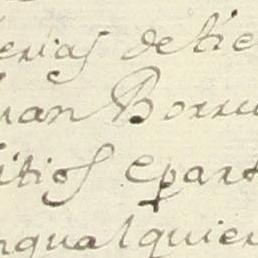 erias detie
uan Borru
itios epart
ngualquier